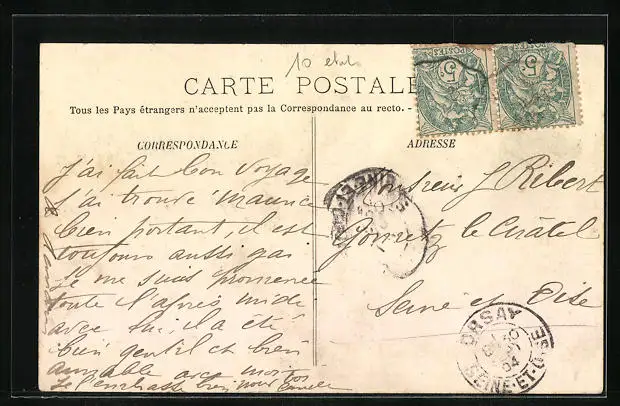 10 etat
CARTE POSTALE
Tous les Pays étrangers n'acceptent pas la Correspondance au recto. -
CORRESPONDANCE
J'ai fait bon voyage
j'ai trouvé Maurice
bien portant, il est
toujours aussi gai
Je me suis promenée
toute l'après midi
avec lui, il a été
bien gentil et bien
aimable avec moi
Je l'embrasse bien pour
ADRESSE
Monsieur J Ribert
Gometz le Châtel
Seine et Oise
POSTES 5c
POSTES 5c
ORSAY
04
SEINE-ET-OISE